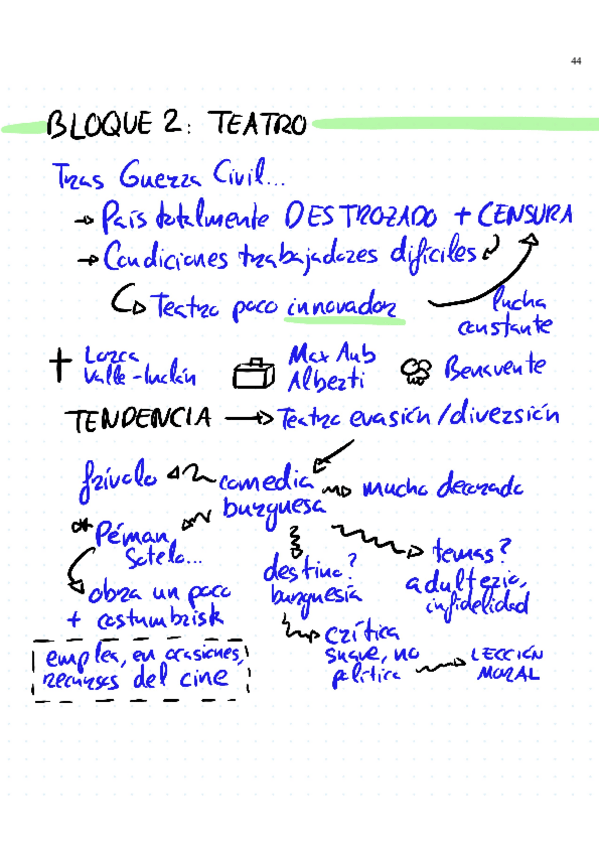 44
BLOQUE 2: TEATRO
Tras Guerra Civil...
→ País totalmente DESTROZADO + CENSURA
→ Condiciones trabajadores difíciles
Teatro poco innovador
lucha
constante
Lorca
Valle-Inclán
Max Aub
Alberti
Benavente
TENDENCIA → Teatro evasión/diversión
frívolo
comedia
burguesa
mucho decorado
* Péman,
Sotelo...
obra un poco
+ costumbrisk
destino?
burguesía
temas?
adulterio,
infidelidad
crítica
suave, no
política
LECCIÓN
MORAL
emplea, en ocasiones,
recursos del cine